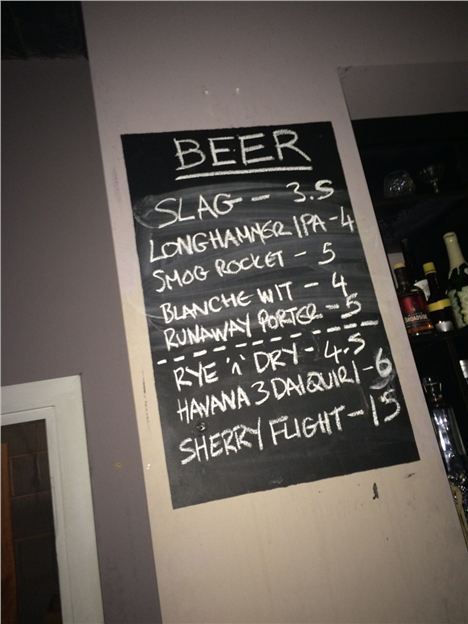 BEER
SLAG - 3.5
LONGHAMMER IPA - 4
SMOG ROCKET - 5
BLANCHE WIT - 4
RUNAWAY PORTER - 5
RYE 'n' DRY - 4.5
HAVANA 3 DAIQUIRI - 6
SHERRY FLIGHT - 15